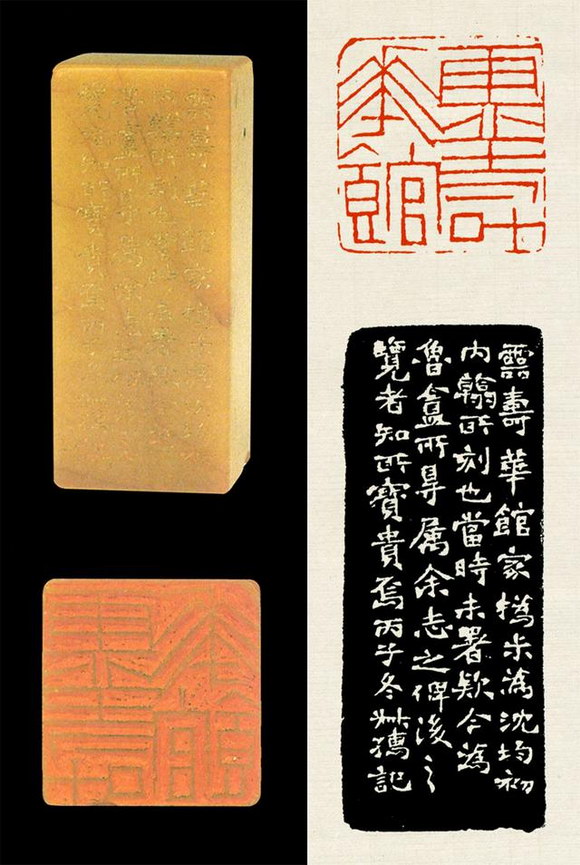 靈壽
華館
靈壽華館家撝尗為沈均初
内翰所刻也當時未署欵今為
魯盦所㝵属余志之俾後之
覽者知所寶貴焉丙子冬尗孺記